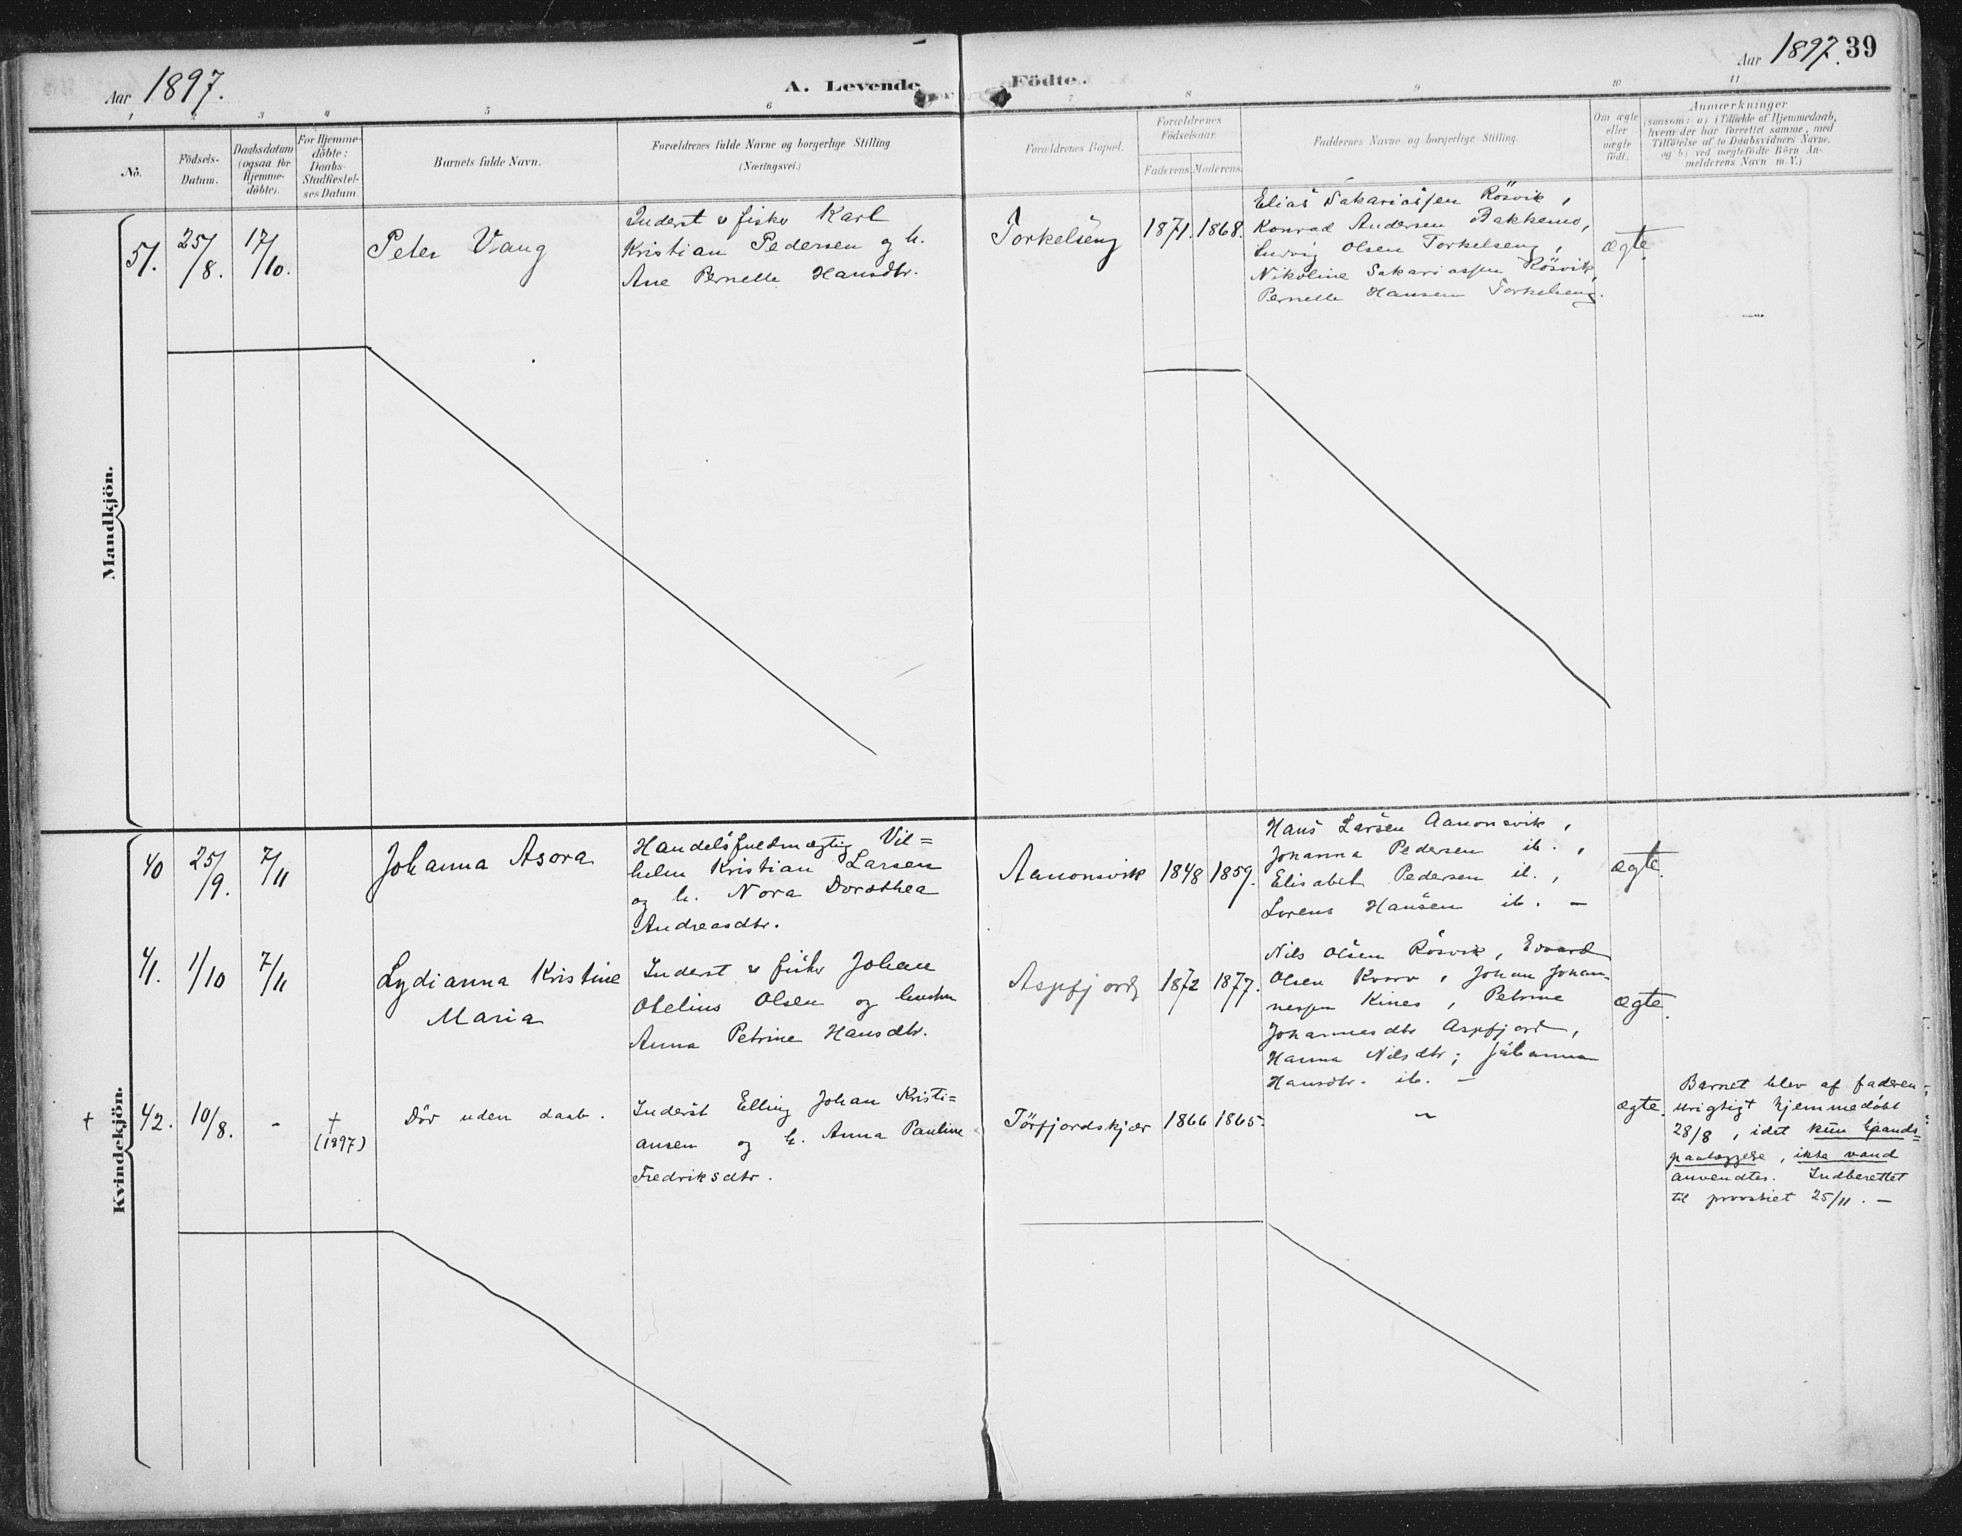 Aar 1897.
A. Levende Födte.
Aar 1897. 39
1 2 3 4 5 6 7 8 9 10 11
No.
Födsels-
Datum.
Daabsdatum
(ogsaa for
Hjemme-
döbte).
For Hjemme-
döbte:
Daabs-
Stadfæstel-
ses Datum
Barnets fulde Navn.
Forældrenes fulde Navne og borgerlige Stilling
(Næringsvei.)
Forældrenes Bopæl.
Forældrenes
Födselsaar.
Faderens. Moderens.
Faddernes Navne og borgerlige Stilling.
Om ægte
eller
uægte
födt.
Anmærkninger
(saasom: a) i Tilfælde af Hjemmedaab,
hvem der har forrettet samme, med
Tilföielse af to Daabsvidners Navne.
og b) ved uægtefödte Börn An-
melderens Navn m. V.)
Mandkjön.
51.
25/8.
17/10.
Peter Vang
Inderst & fisker Karl
Kristian Pedersen og h.
Ane Pernelle Hansdtr.
Torkelseng
1871. 1868.
Elias Sakariassen Rösvik,
Konrad Andersen Bakkemo,
Ludvig Olsen Torkelseng,
Nikoline Sakariassen Rösvik,
Pernelle Hansen Torkelseng.
ægte.
Kvindekjön.
40
25/9.
7/11
Johanna Asora
Handelsfuldmægtig Vil=
helm Kristian Larsen
og h. Nora Dorothea
Andreasdtr.
Aanonsvik
1848 1859.
Hans Larsen Aanonsvik,
Johanna Pedersen ib.,
Elisabet Pedersen ib.,
Lorens Hansen ib. –
ægte.
41.
1/10
7/11
Lydianna Kristine
Maria
Inderst & fisker Johan
Otelius Olsen og hustru
Anna Petrine Hansdtr.
Aspfjord
1872 1877.
Nils Olsen Rösvik, Edvard
Olsen Kvarv, Johan Johan-
nessen Kines, Petrine
Johannesdtr Aspfjord,
Hanna Nilsdtr; Johanna
Hansdtr. ib. –
ægte.
† 42.
10/8.
-
†
(1897)
Döv uden daab.
Inderst Elling Johan Kristi=
ansen og h. Anna Pauline
Fredriksdtr.
Törfjordskjær
1866 1865.
~
ægte.
Barnet blev af faderen
urigtigt hjemmedöbt
28/8, idet kun haands=
paalæggelse, ikke vand
anvendtes. Indberettet
til provstiet 25/11. –